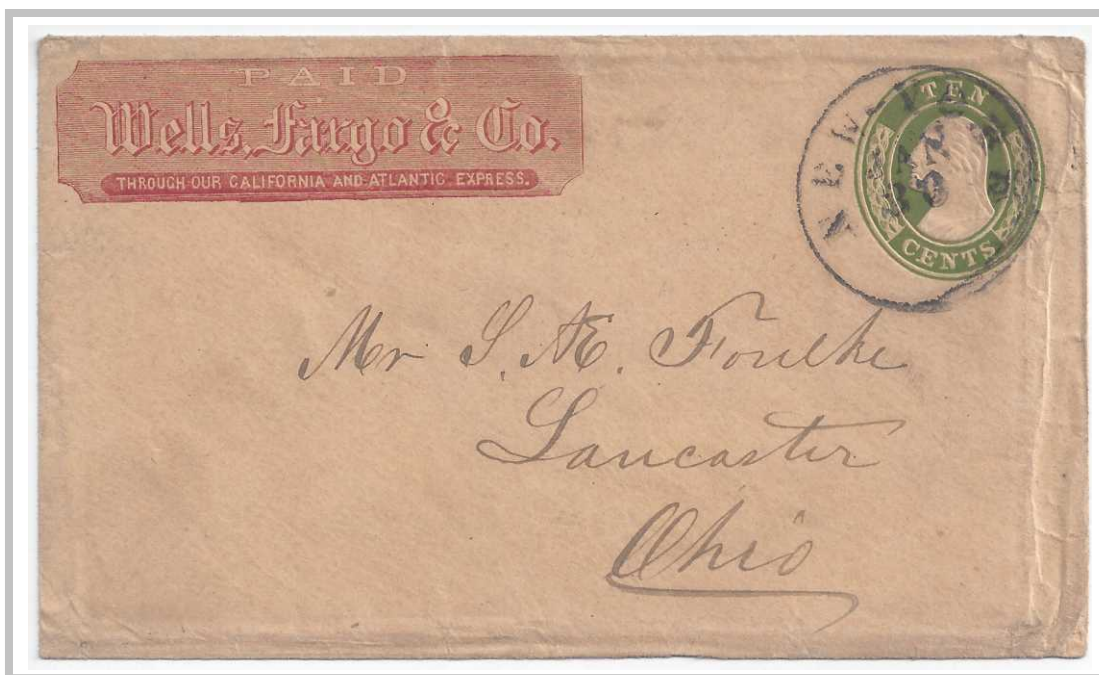 PAID
Wells, Fargo & Co.
THROUGH OUR CALIFORNIA AND ATLANTIC EXPRESS.
TEN
CENTS
NEW
Mr S. AE. Foulke
Lancaster
Ohio